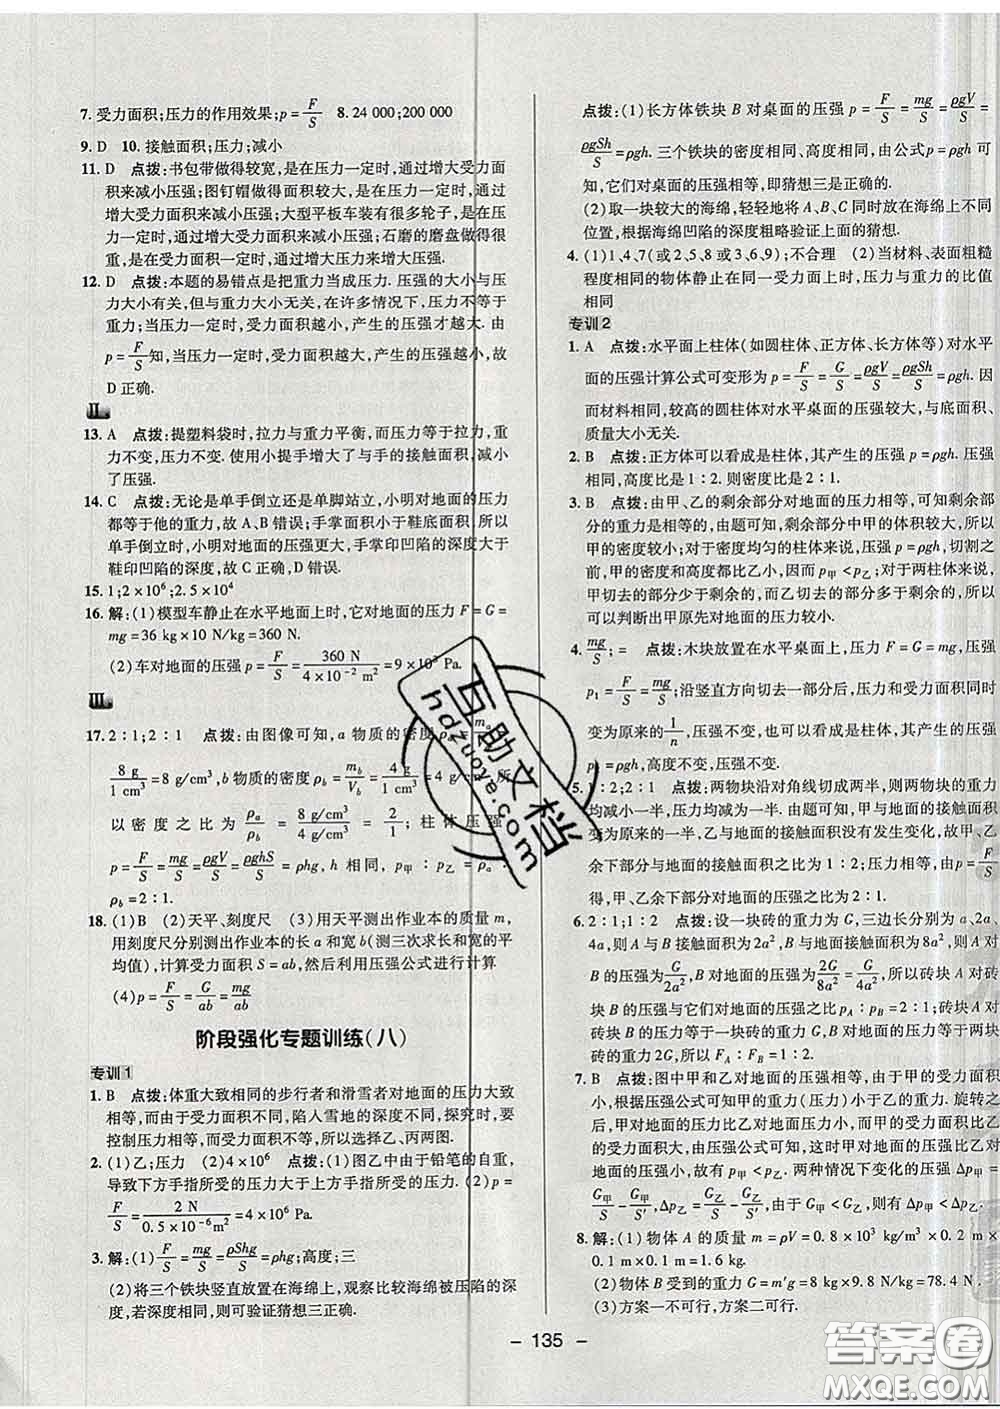 7. 受力面积;压力的作用效果;p=F/S  8. 24 000;200 000
9. D  10. 接触面积;压力;减小
11. D  点拨:书包带做得较宽,是在压力一定时,通过增大受力面
积来减小压强;图钉帽做得面积较大,是在压力一定时,通过
增大受力面积来减小压强;大型平板车装有很多轮子,是在压
力一定时,通过增大受力面积来减小压强;石磨的磨盘做得很
重,是在受力面积一定时,通过增大压力来增大压强.
12. D  点拨:本题的易错点是把重力当成压力. 压强的大小与压
力大小有关,但与重力大小无关,在许多情况下,压力不等于
重力;当压力一定时,受力面积越小,产生的压强才越大. 由
p=F/S知,当压力一定时,受力面积越大,产生的压强越小,故
D正确.
Ⅱ
13. A  点拨:提塑料袋时,拉力与重力平衡,而压力等于拉力,重
力不变,压力不变. 使用小提手增大了与手的接触面积,减小
了压强.
14. C  点拨:无论是单手倒立还是单脚站立,小明对地面的压力
都等于他的重力,故A、B错误;手掌面积小于鞋底面积,所以
单手倒立时,小明对地面的压强更大,手掌印凹陷的深度大于
鞋印凹陷的深度,故C正确,D错误.
15. 1;2×10⁶;2.5×10⁴
16. 解:(1)模型车静止在水平地面上时,它对地面的压力F=G=
mg=36 kg×10 N/kg=360 N.
(2)车对地面的压强p=F/S=360 N/4×10⁻² m²=9×10³ Pa.
Ⅲ
17. 2∶1;2∶1  点拨:由图像可知,a物质的密度
8 g/1 cm³=8 g/cm³,b物质的密度ρb=mb/Vb=4 g/1 cm³=4 g/cm³,所
以密度之比为ρa/ρb=8 g/cm³/4 g/cm³=2/1;柱体压强
p=F/S=mg/S=ρgV/S=ρghS/S=ρhg,h相同,p甲∶p乙=ρa∶
ρb=2∶1.
18. (1)B  (2)天平、刻度尺  (3)用天平测出作业本的质量m,
用刻度尺分别测出作业本的长a和宽b(测三次求长和宽的平
均值),计算受力面积S=ab,然后利用压强公式进行计算
(4)p=F/S=G/ab=mg/ab
阶段强化专题训练(八)
专训1
1. B  点拨:体重大致相同的步行者和滑雪者对地面的压力大致
相等,而由于受力面积不同,陷入雪地的深度不同,探究时,要
控制压力相等,而受力面积不等,所以选择乙、丙两图.
2. (1)乙;压力  (2)4×10⁶  点拨:(1)图乙中由于铅笔的自重,
导致下方手指所受的压力大于上方手指所受的压力. (2)p=
F/S=2 N/0.5×10⁻⁶m²=4×10⁶ Pa.
3. 解:(1)F/S=mg/S=ρShg/S=ρhg;高度;三
(2)将三个铁块竖直放置在海绵上,观察比较海绵被压陷的深
度,若深度相同,则可验证猜想三正确.
点拨:(1)长方体铁块B对桌面的压强p=F/S=mg/S=ρgV/S=
ρgSh/S=ρgh. 三个铁块的密度相同、高度相同,由公式p=ρgh可
知,它们对桌面的压强相等,即猜想三是正确的.
(2)取一块较大的海绵,轻轻地将A、B、C同时放在海绵上不同
位置,用海绵凹陷的深度粗略验证上面的猜想.
4. (1)1,4,7(或2,5,8或3,6,9);不合理  (2)当材料、表面粗糙
程度相同的物体静止在同一受力面上时,压力与重力的比值
相同
专训2
1. A  点拨:水平面上柱体(如圆柱体、正方体、长方体等)对水平
面的压强计算公式可变形为p=F/S=G/S=ρgV/S=ρgSh/S=ρgh. 因
而材料相同,较高的圆柱体对水平桌面的压强较大,与底面积、
质量大小无关.
2. B  点拨:正方体可以看成是柱体,其产生的压强p=ρgh. 压强
相同,高度比是1∶2. 则密度比是2∶1.
3. B  点拨:由甲、乙的剩余部分对地面的压力相等,可知剩余部
分的重力是相等的,由题可知,剩余部分中甲的体积较大,所以
甲的密度较小;对于密度均匀的柱体来说,压强p=ρgh,切割之
前,甲的密度和高度都比乙小,因此p甲<p乙;对于两柱体来说,
甲切去的部分少于剩余的部分,而乙切去的部分多于剩余的部
分,可判断出甲原先对地面的压力较小.
4. mg/S;=  点拨:木块放置在水平桌面上,压力F=G=mg,压强
p₁=F/S=mg/S;沿竖直方向切去一部分后,压力和受力面积同时
变为原来的1/n,压强不变,也可以看成是柱体,其产生的压强
p=ρgh,高度不变,压强不变.
5. 1∶2;2∶1  点拨:两物块沿对角线切成两半,则两物块的重力
均减小一半,压力均减为一半. 甲与地面的接触面积
变为原来的一半,乙与地面的接触面积没有发生变化,故甲、乙
余下部分与地面的接触面积之比为1∶2;压力相等,由p=F/S
得,甲、乙余下部分对地面的压强之比为2∶1.
6. 2∶1;1∶2  点拨:设一块砖的重力为G,三边长分别为a、2a、
4a,则A与B接触面积为2a²,B与地面接触面积为8a²,所以A对
B的压强为G/2a²,B对地面的压强为2G/8a²=G/4a²,所以砖块A对砖
块B的压强与它们对地面的压强之比pA∶pB=2∶1;砖块A对
砖块B的压力等于一块砖的重力G,砖块B对地面的压力等于两块砖
的重力2G,所以FA∶FB=1∶2.
7. B  点拨:图中甲和乙对地面的压强相等,由于甲的受力面积
小,根据压强公式可知甲的重力(压力)小于乙的重力. 旋转之
后,甲对地面的压力比乙对地面压力小,而甲的受力面积比乙
的受力面积大,由压强公式可知,这时甲对地面的压强比乙对
地面的压强小,故p甲<p乙. 两种情况下变化的压强Δp甲=
G甲/S-G甲/S′,Δp乙=G乙/S-G乙/S′,由于G甲<G乙,则有Δp甲<Δp乙.
8. 解:(1)物体A的质量m=ρV=0.8×10³ kg/m³×0.2 m
×0.1 m×0.1 m=1.6 kg.
(2)物体B受到的重力G=m′g=8 kg×9.8 N/kg=78.4 N.
(3)方案一不可行,方案二可行.
- 135 -
互助文档
hdzuoye.com
答案圈
MXQE.COM